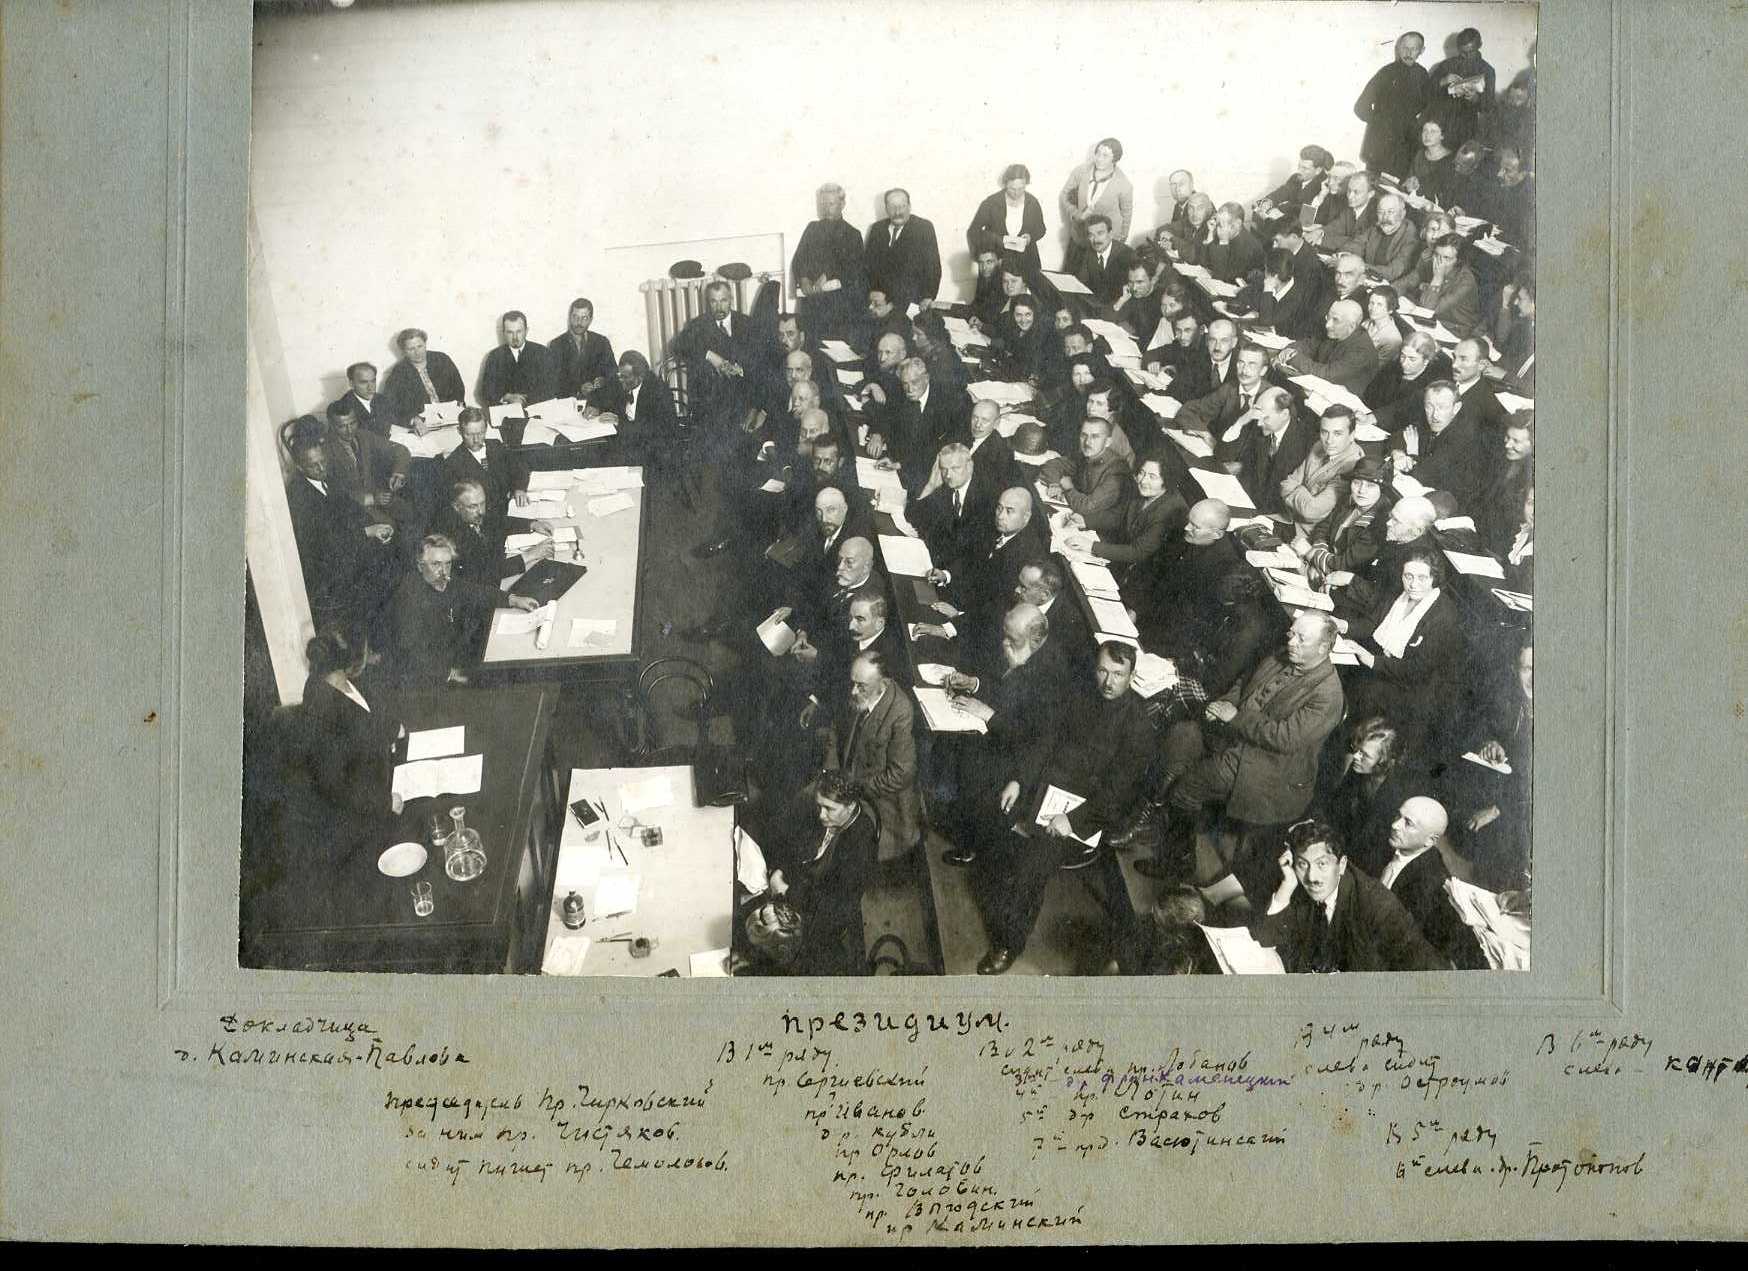 Докладчица
д. Каминская-Павлова
президиум.
председатель пр. Чирковский
за ним пр. Чистяков.
сидит пишет пр. Чемолосов.
В 1м ряду
пр Сергиевский
пр Иванов
др. Кубли
пр Орлов
пр. Филатов
пр. Головин.
пр. Выгодский
пр Каминский
Во 2м ряду
сидит слева пр. Лобанов
3й др Франк-Каменецкий
4й пр. Лотин
5й др Страхов
7й прд. Васютинский
В 4м ряду
слева сидит
др. Остроумов
В 5м ряду
6й слева др. Протопопов
В 6м ряду
слева -